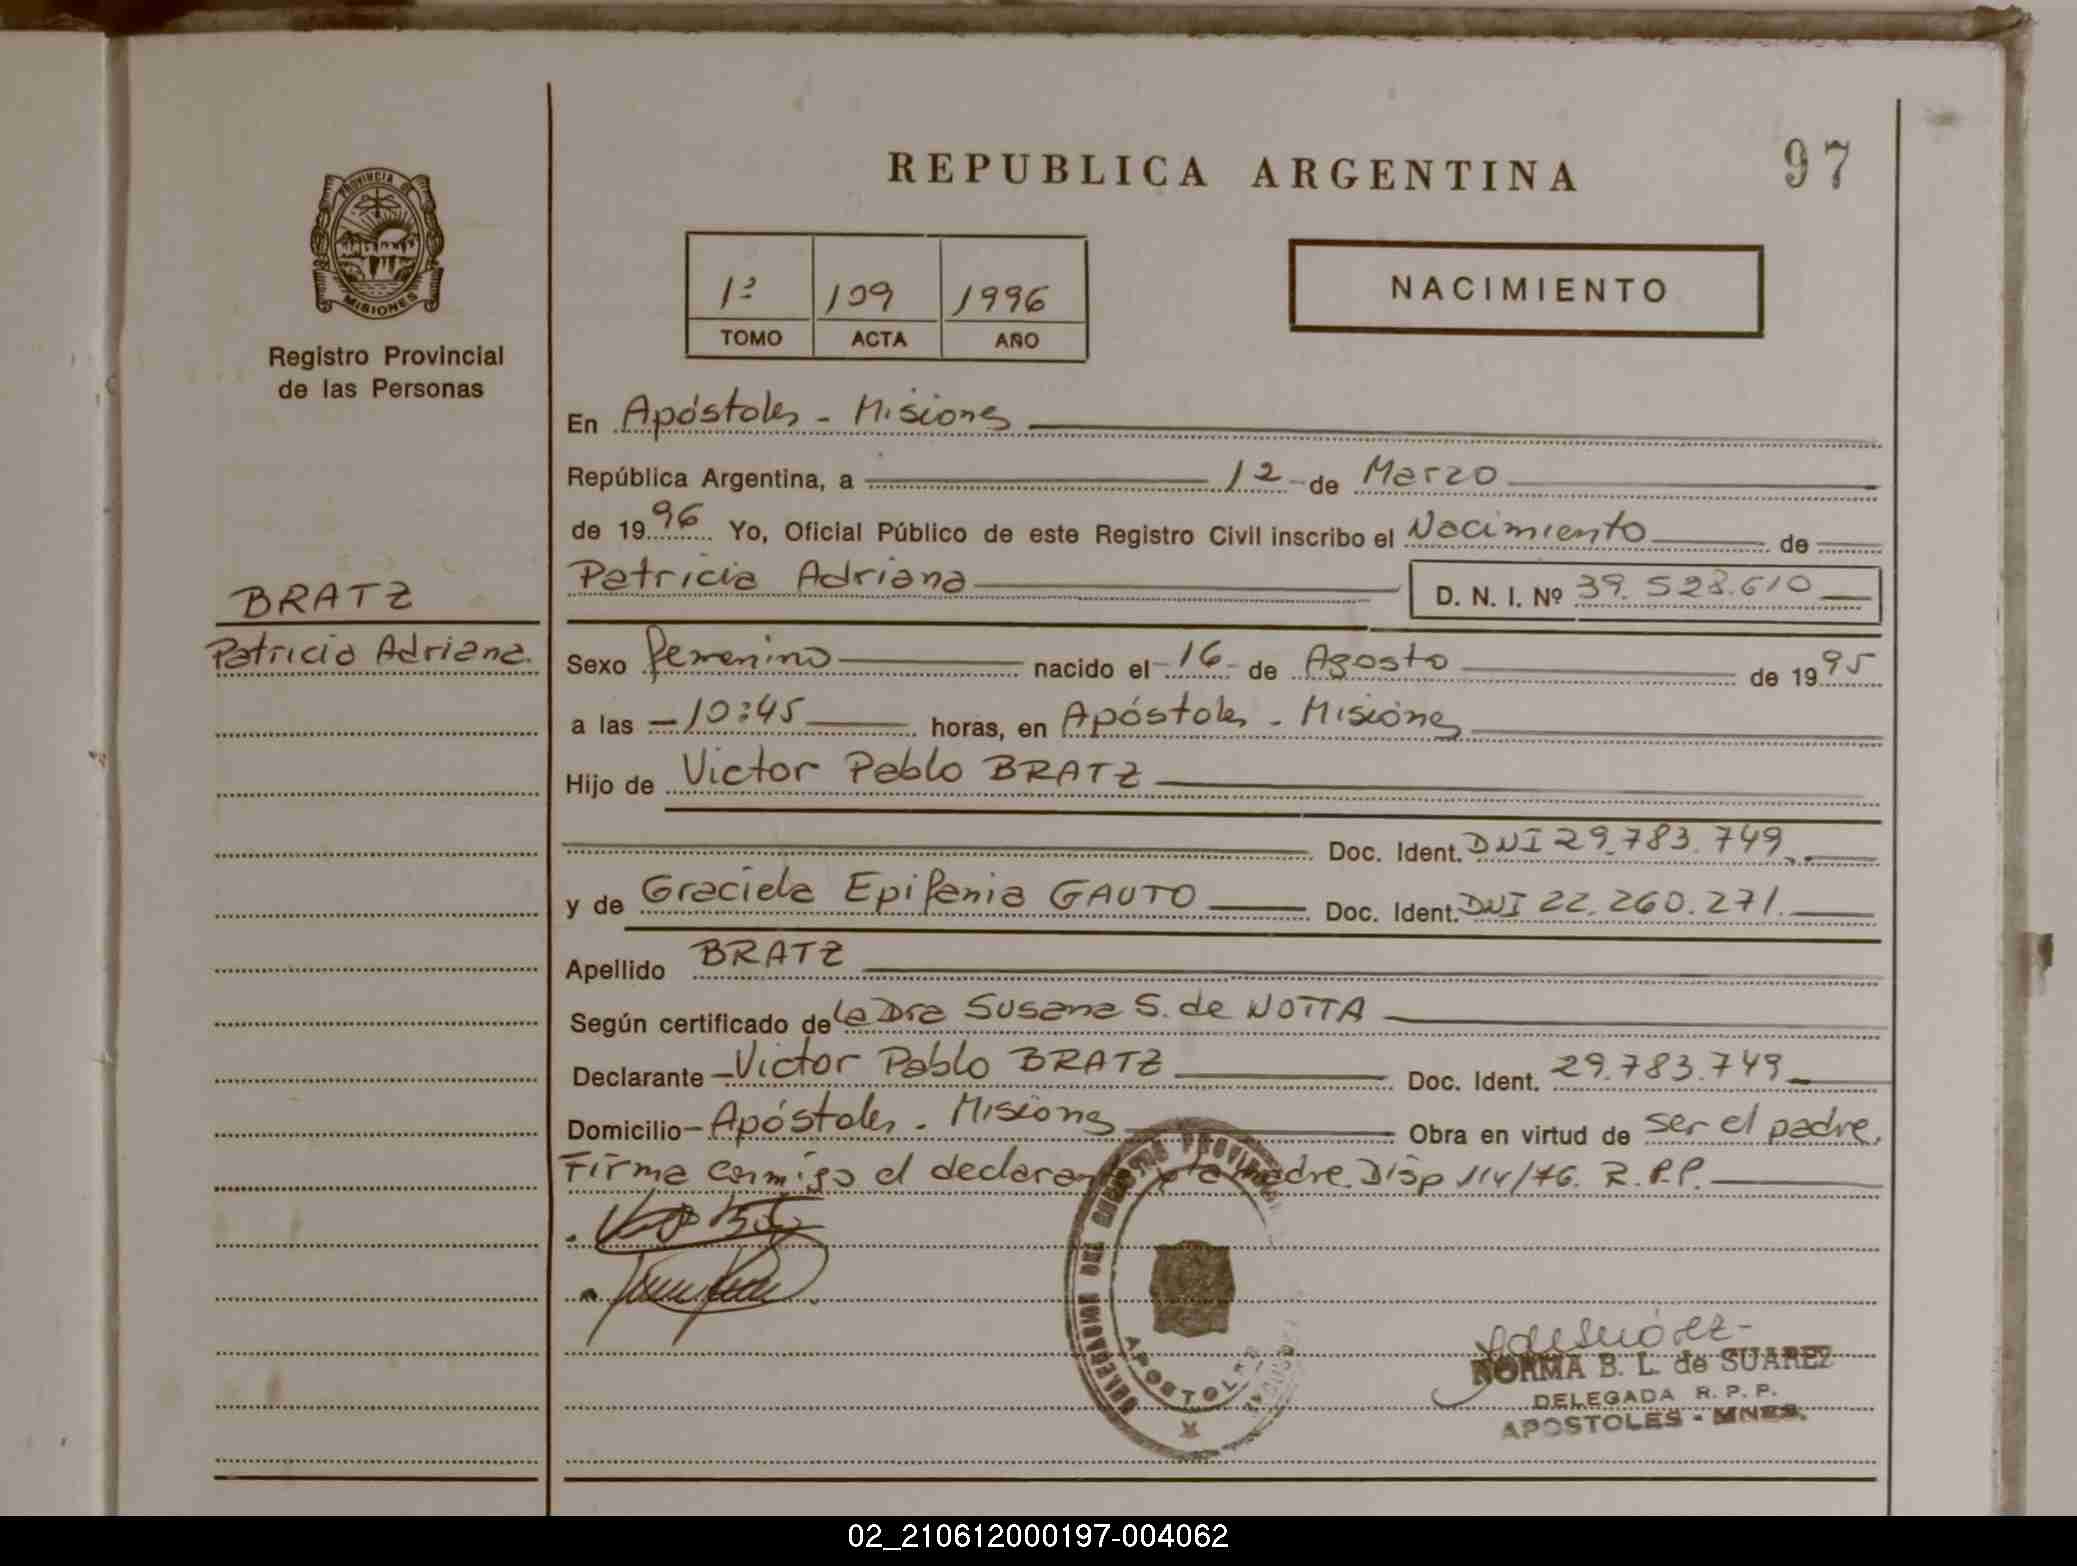 REPUBLICA ARGENTINA
97
PROVINCIA DE
MISIONES
Registro Provincial
de las Personas
1º 109 1996
TOMO ACTA AÑO
NACIMIENTO
En Apóstoles - Misiones
República Argentina, a 12 de Marzo
de 1996 Yo, Oficial Público de este Registro Civil inscribo el Nacimiento de
Patricia Adriana D. N. I. Nº 39.528.610
BRATZ
Patricia Adriana.
Sexo femenino nacido el 16 de Agosto de 1995
a las 10:45 horas, en Apóstoles - Misiones
Hijo de Victor Pablo BRATZ
Doc. Ident. DNI 29.783.749.
y de Graciela Epifania GAUTO Doc. Ident. DNI 22.260.271.
Apellido BRATZ
Según certificado de La Dra Susana S. de NOTTA
Declarante Victor Pablo BRATZ Doc. Ident. 29.783.749
Domicilio Apóstoles - Misiones Obra en virtud de ser el padre.
Firma conmigo el declarante y la madre. Disp 114/76. R.P.P.
DELEGACION DEL REGISTRO PROVINCIAL
APOSTOLES
NORMA B. L. de SUAREZ
DELEGADA R. P. P.
APOSTOLES - MNES.
02_210612000197-004062